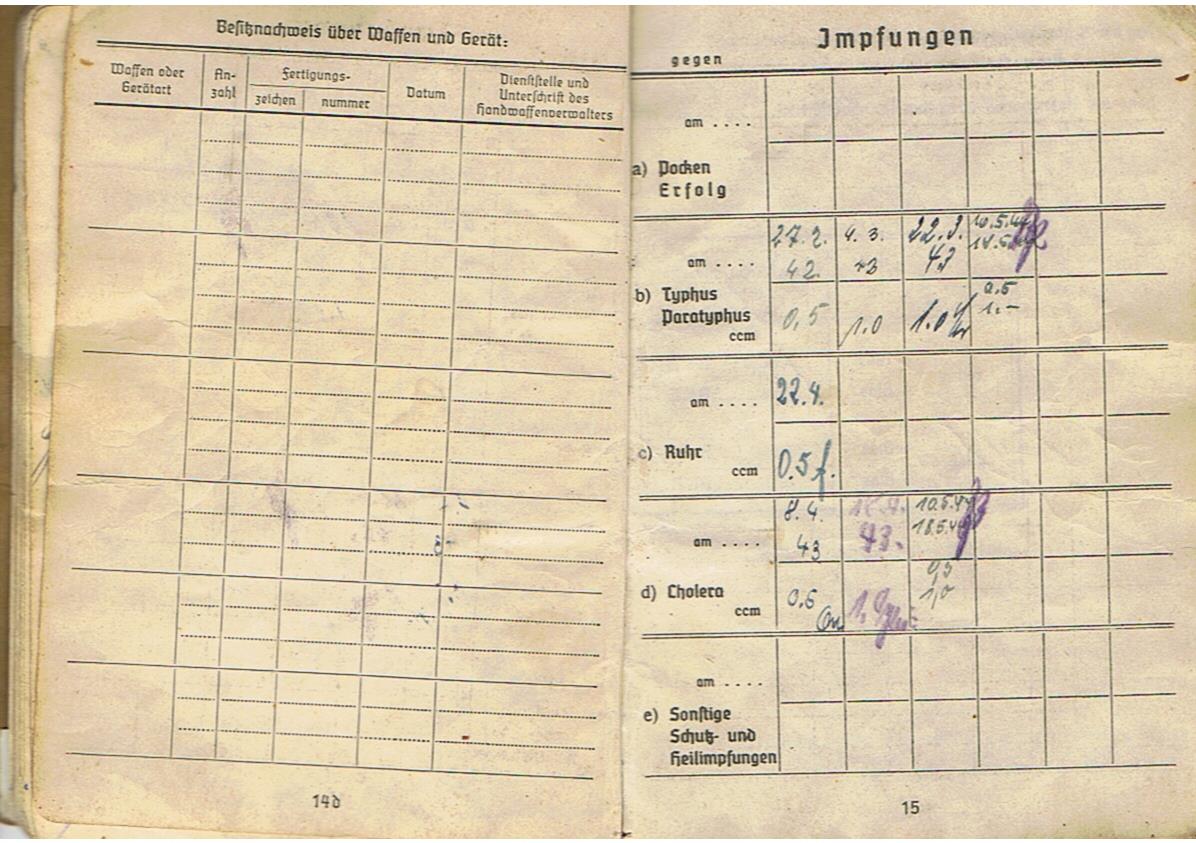 Besitznachweis über Waffen und Gerät:
Waffen oder
Gerätart
An-
zahl
Fertigungs-
zeichen
nummer
Datum
Dienststelle und
Unterschrift des
Handwaffenverwalters
14d
Impfungen
gegen
am ....
a) Pocken
Erfolg
27. 2. 4. 3. 22. 3. 10.5.44
am .... 42. 43 43 18.5.44
b) Typhus
Paratyphus
ccm
0,5 1.0 1.0 0,5
1.–
22.4.
am ....
c) Ruhr
ccm
0.5
8.4. 10.5.44
18.5.44
am .... 43 43.
d) Cholera
ccm
0.5 1. 0,5
1,0
am ....
e) Sonstige
Schutz- und
Heilimpfungen
15